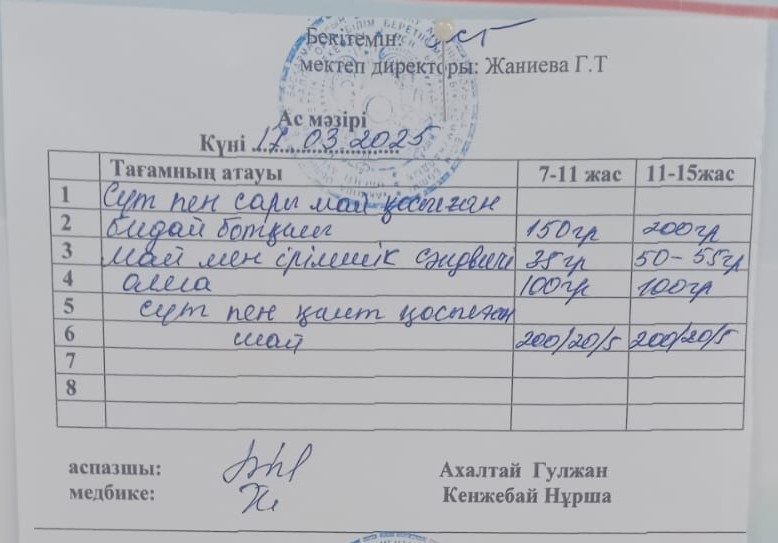 Бекітемін:
мектеп директоры: Жаниева Г.Т
Ас мәзірі
Күні 17.03.2025
Тағамның атауы 7-11 жас 11-15жас
1 Сүт пен сары май қосылған
2 бидай ботқасы 150гр 200гр
3 Май мен ірімшік сэндвичі 35гр 50-55гр
4 алма 100гр 100гр
5 сүт пен қант қосылған
6 шай 200/20/5 200/20/5
7
8
аспазшы: Ахалтай Гулжан
медбике: Кенжебай Нұрша